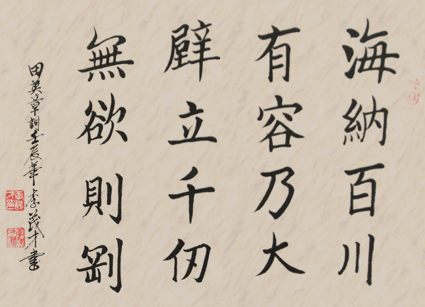 海納百川
有容乃大
壁立千仞
無欲則剛
田英章詞壬辰年李茂才書